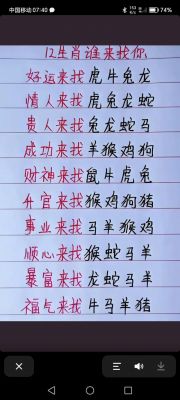 中国移动 07:40
74%
12生肖谁来找你
好运来找虎牛兔龙
情人来找虎兔龙蛇
贵人来找兔龙蛇马
成功来找羊猴鸡狗
财神来找鼠牛虎兔
升官来找猴鸡狗猪
事业来找马羊猴鸡
顺心来找猴蛇马羊
暴富来找龙蛇马羊
福气来找牛马羊猪